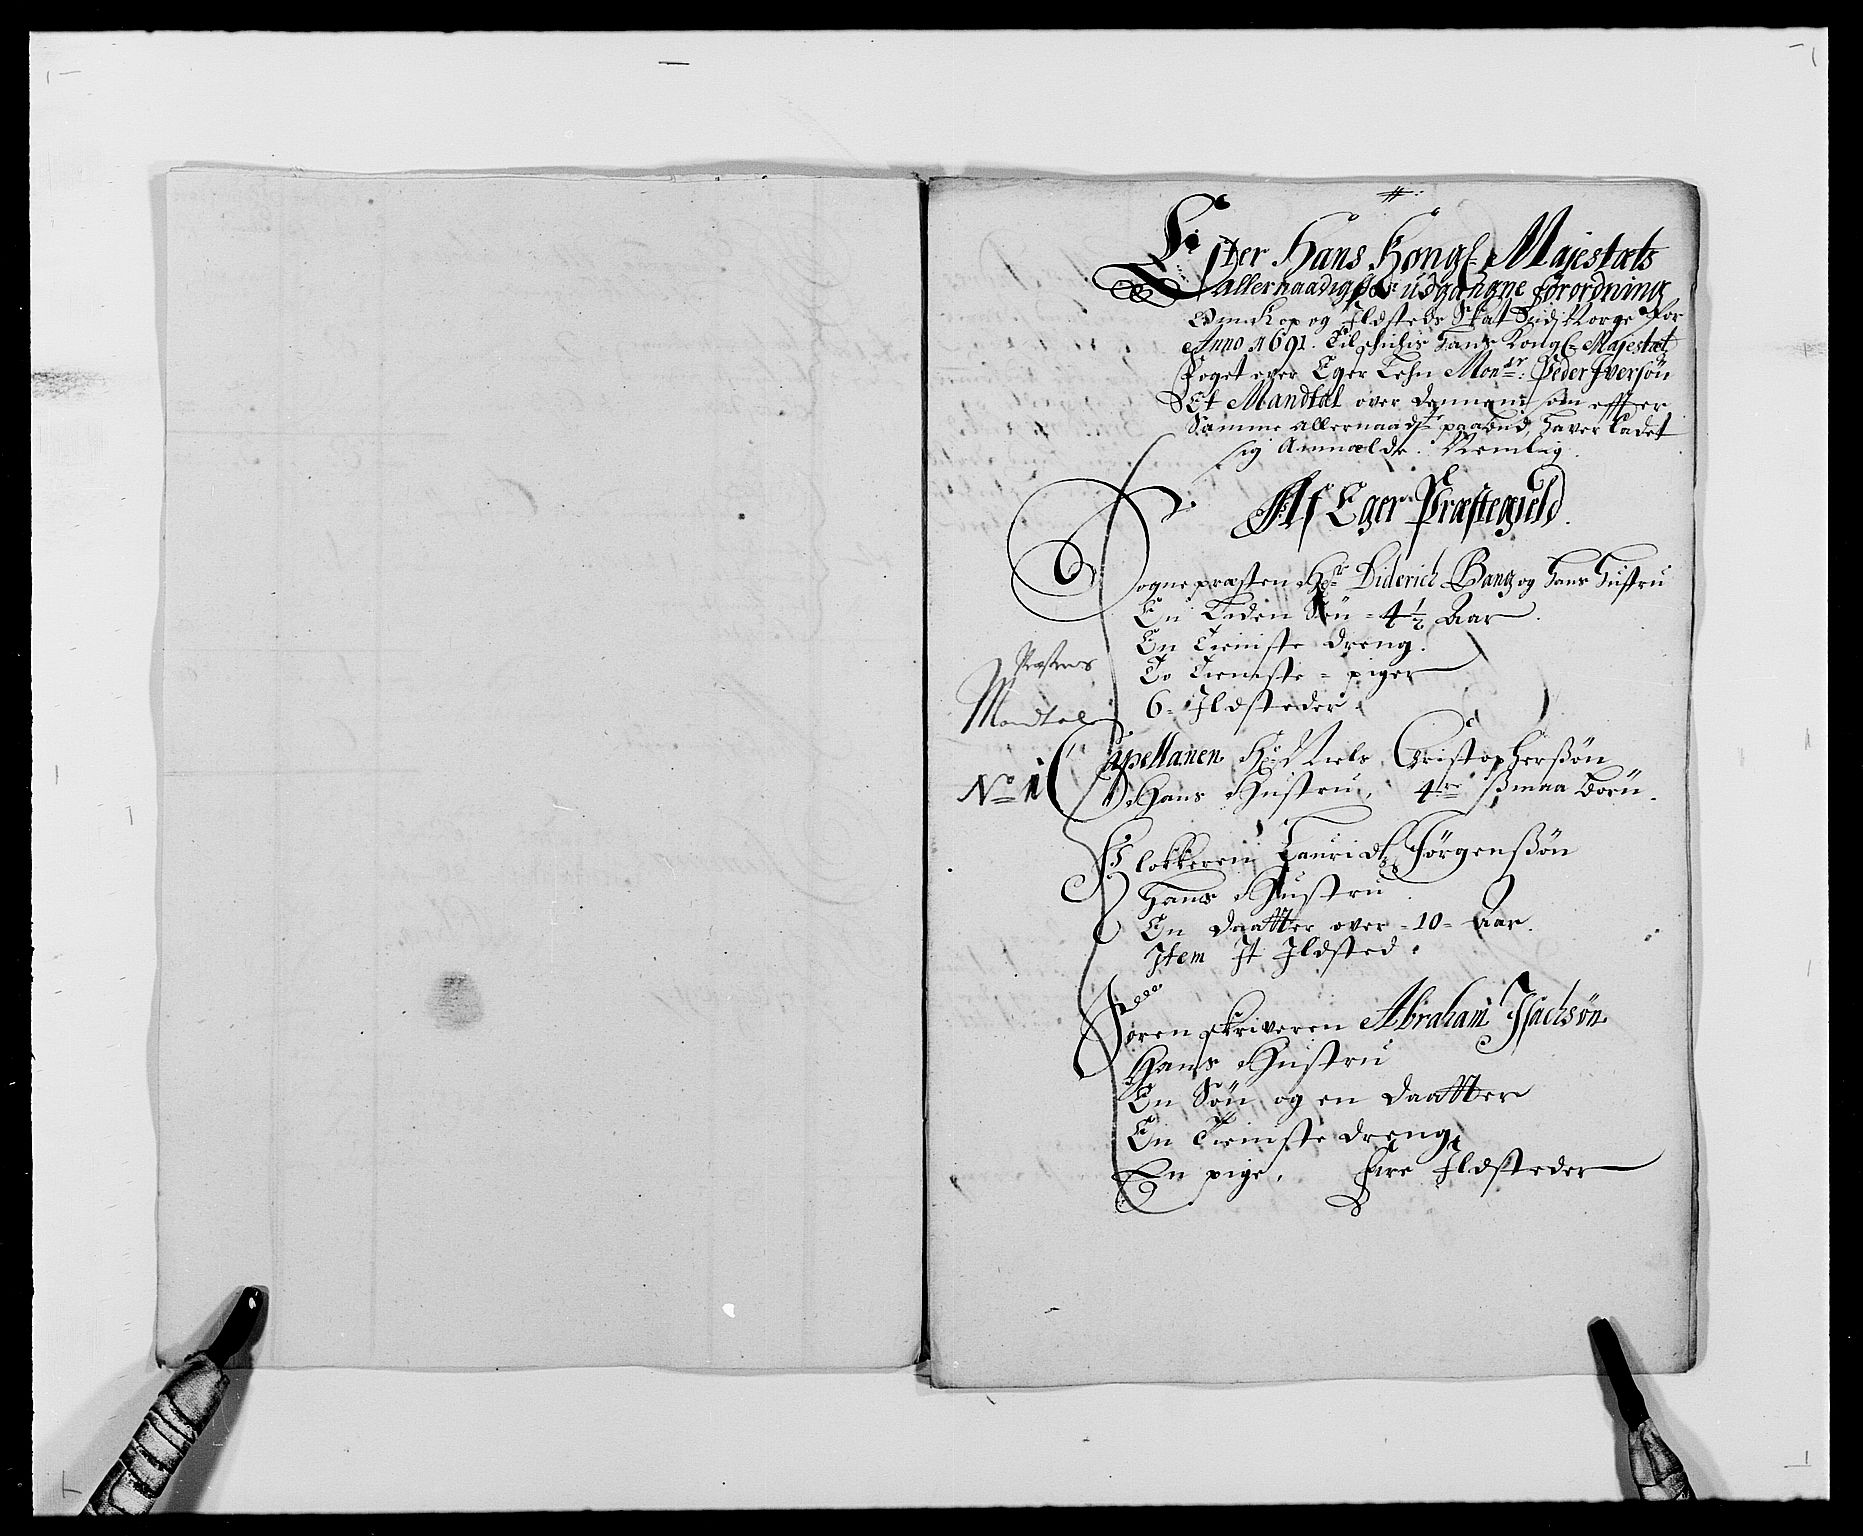 Efter Hans Kongl: Majestæts
allernaadigste udgangne forordning
Om Kop og Ildsteds Skat udj Norge for
Anno 1691. Tilschikis Hans Kongl: Majestæt
foget over Eger Lehn Monsr: Peder Iversøn
Et Mandtal over dennem som effter
Samme allernaadste paabud, haver ladet
sig Anmælde. Nemlig.
Af Eger Præstegield.
Sognepræsten Hr Diderich Bang og Hans Hustru
En Liden Søn = 4½ Aar
En Tieniste dreng.
To Tieniste = piger
6 = Ildsteder.
Præstens
Mandtal
No 1
Capellanen Hr Niels Christophersøn
Hans Hustru, 4re Smaa Børn.
Klokkeren Lauridtz Jørgensøn
Hans Hustru
En daatter over = 10 = Aar.
Item It Ildsted.
Sorenskriveren Abraham Isachsøn
Hans Hustru
En Søn og en daatter
En Tieniste dreng,
En pige, Fire Ildsteder